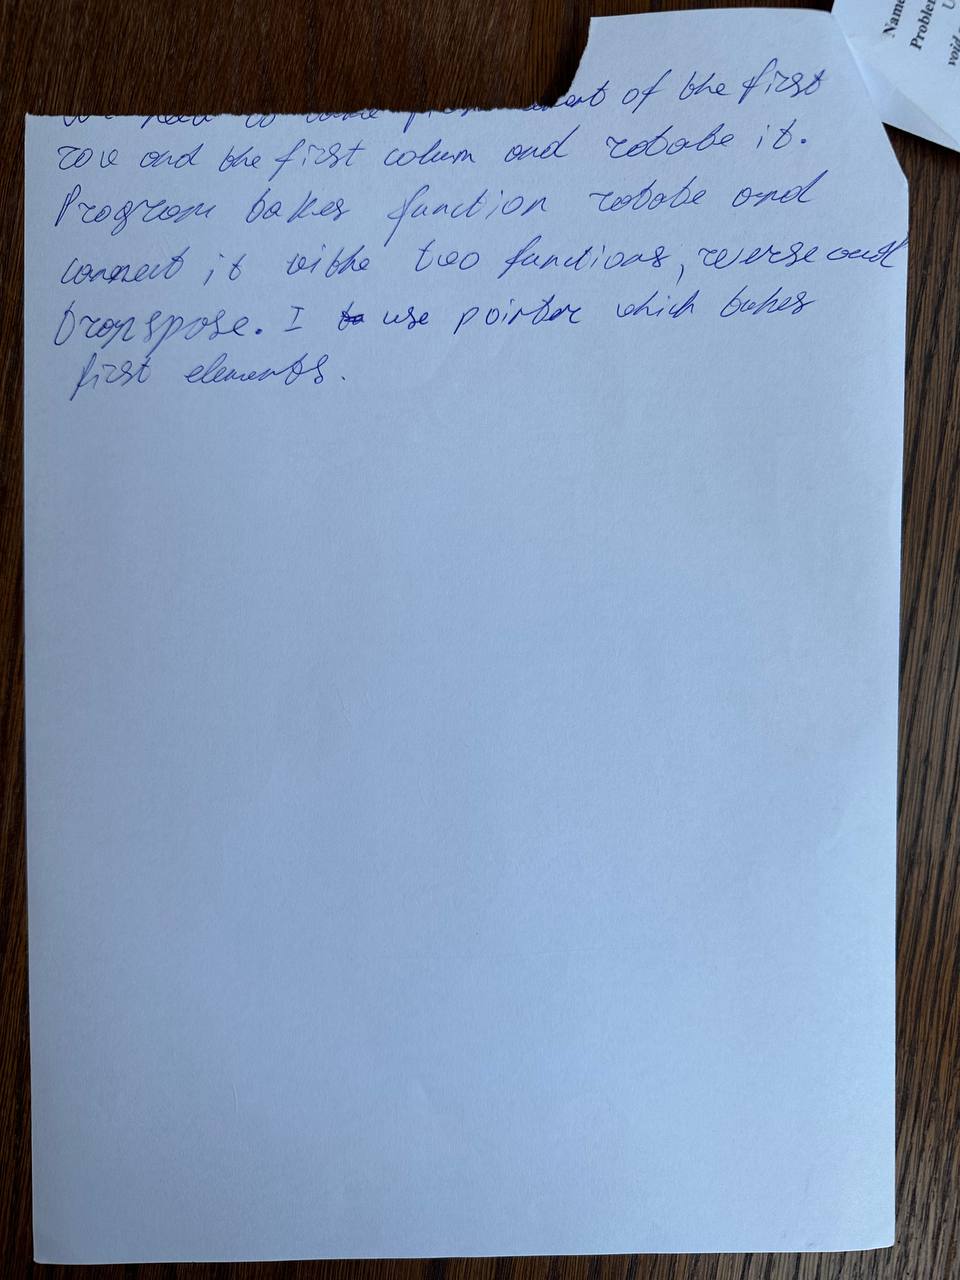 We need to of the first
row and the first colum and rotate it.
Program takes function rotate and
connect it withe two functions, reverse and
transpose. I use pointer which takes
first elements.
Name
Problem
void